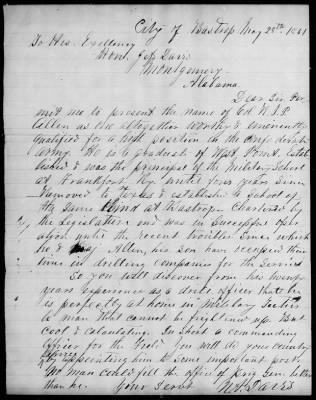 City of Bastrop May 25th 1861
To His Excellency
Hon. Jeff Davis
Montgomery
Alabama.
Dear Sir Per
mit me to present the name of Col R.T.P.
Allen as one altogether worthy & eminently
qualified for a high position in the Confederate
Army. He is a graduate of West Point. Establ
ished & was the principal of the Military School
at Frankfort Ky until four years since
removed to Texas & established a school of
the same kind at Bastrop. Chartered by
the Legislature and was in successful oper
ation until the recent troubles since which
he & Allen, his son have occupied their
time in drilling companies for the service
So you will discover from his twenty
years experience as a drill officer that he
is perfectly at home in military tactics
A man that cannot be frightened up. But
cool & calculating. In short a commanding
Officer for the Field. You will do your country
service by appointing him to some important post.
No man could fill the office of Brig Gen better
than he. Your Servt
Davis